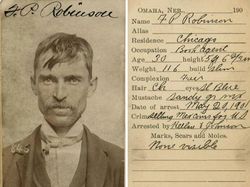 F. P. Robinson
OMAHA, NEB. 190
Name F P Robinson
Alias
Residence Chicago
Occupation Book Agent
Age 30 height 5 ft 6 3/4 in
Weight 116 build Slim
Complexion Fair
Hair Ch eyes Sl Blue
Mustache sandy
Date of arrest May 29, 1901
Crime selling for U.S
Arrested by & Johnson
Marks, Scars and Moles.
None visible